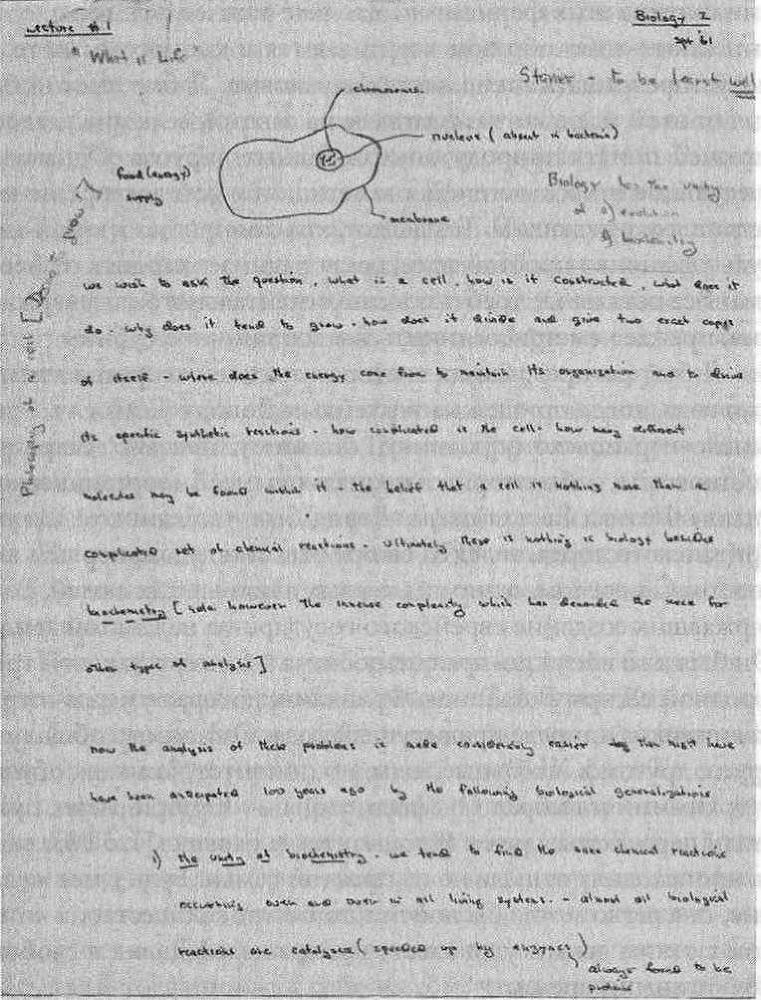 Lecture #1
Biology 2
Spr 61
" What is Life
Stoner - to be learnt well
chromosomes
nucleus (absent in bacteria)
food (energy)
supply
membrane
Biology has the unity
of a) evolution
b) biochemistry
Philosophy of a cell
we wish to ask the question, what is a cell, how is it constructed, what does it
do - why does it tend to grow, how does it divide and give two exact copys
of itself - where does the energy come from to maintain its organization and to drive
its specific synthetic reactions - how complicated is the cell - how many different
molecules may be found within it The belief that a cell is nothing more than a
complicated set of chemical reactions. Ultimately there is nothing in biology besides
biochemistry [note however the immense complexity which has demanded the need for
other type of analysis]
now the analysis of these problems is made considerably easier than might have
have been anticipated 100 years ago by the following biological generalizations
1) The unity of biochemistry - we tend to find the same chemical reactions
occurring over and over in all living systems. - almost all biological
reactions are catalyzed (speeded up by enzymes)
always found to be
protein